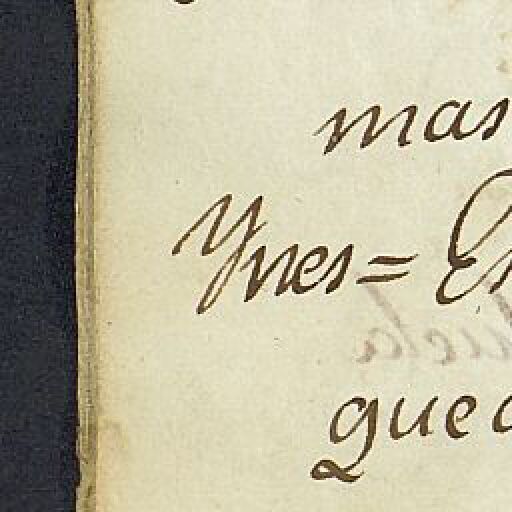 mas
Ynes=
que